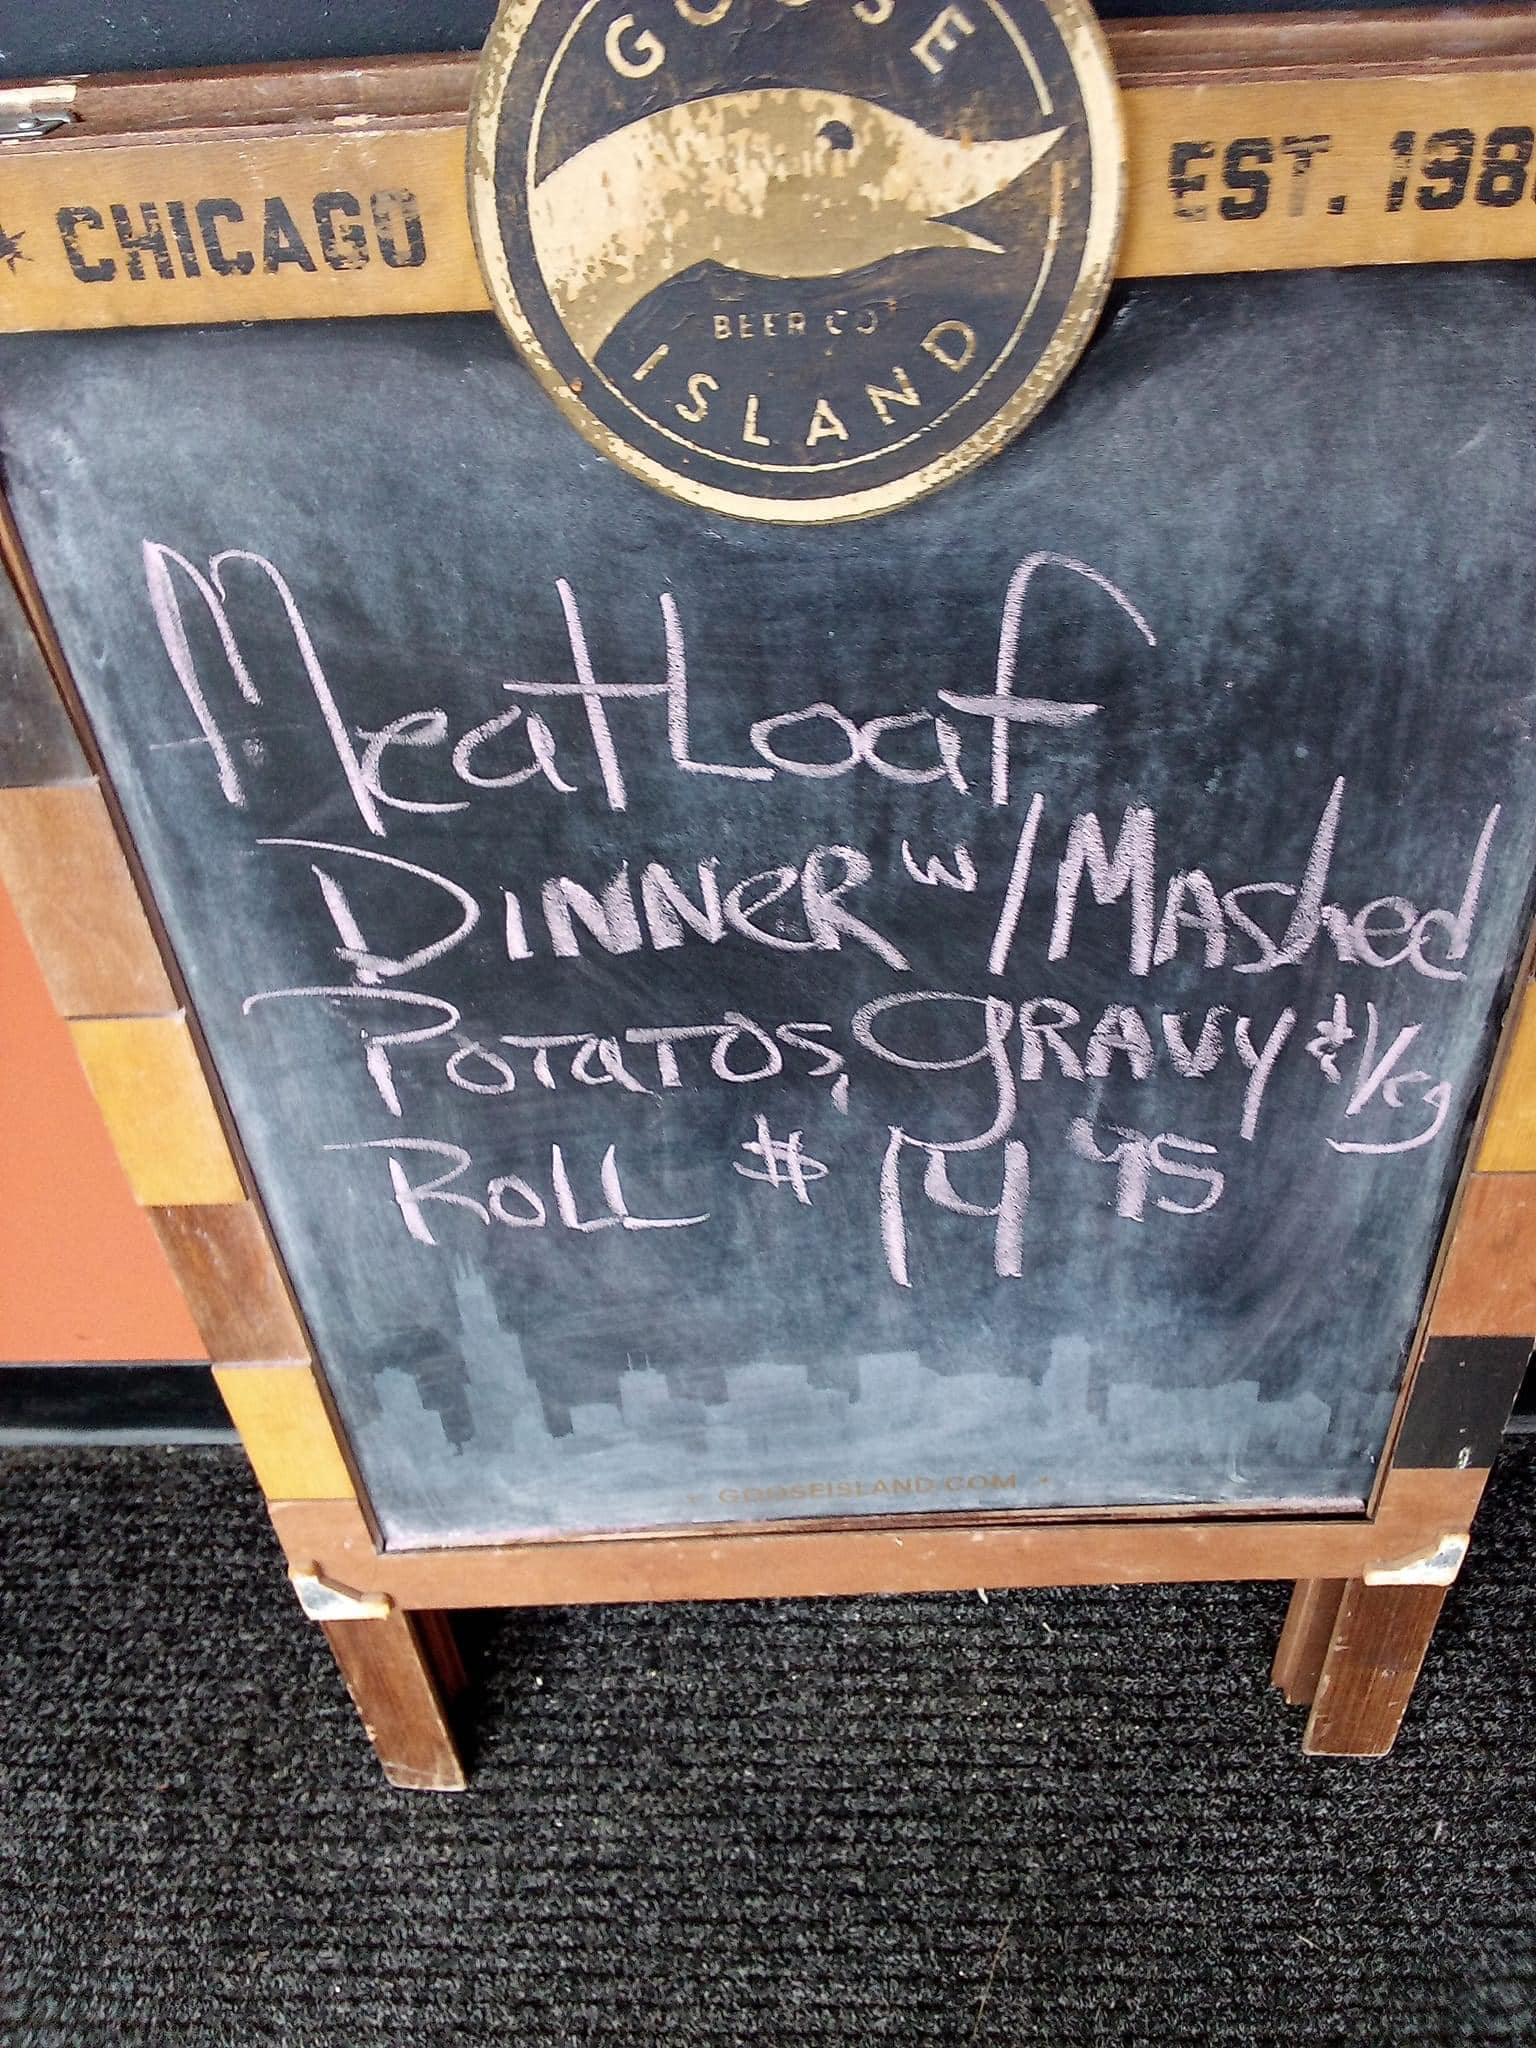 GOOSE
CHICAGO
EST. 198
BEER CO
ISLAND
MeatLoaf
DINNeR w/Mashed
PoTaTOS, GRAVY & Veg
RoLL $14 95
GOOSEISLAND.COM